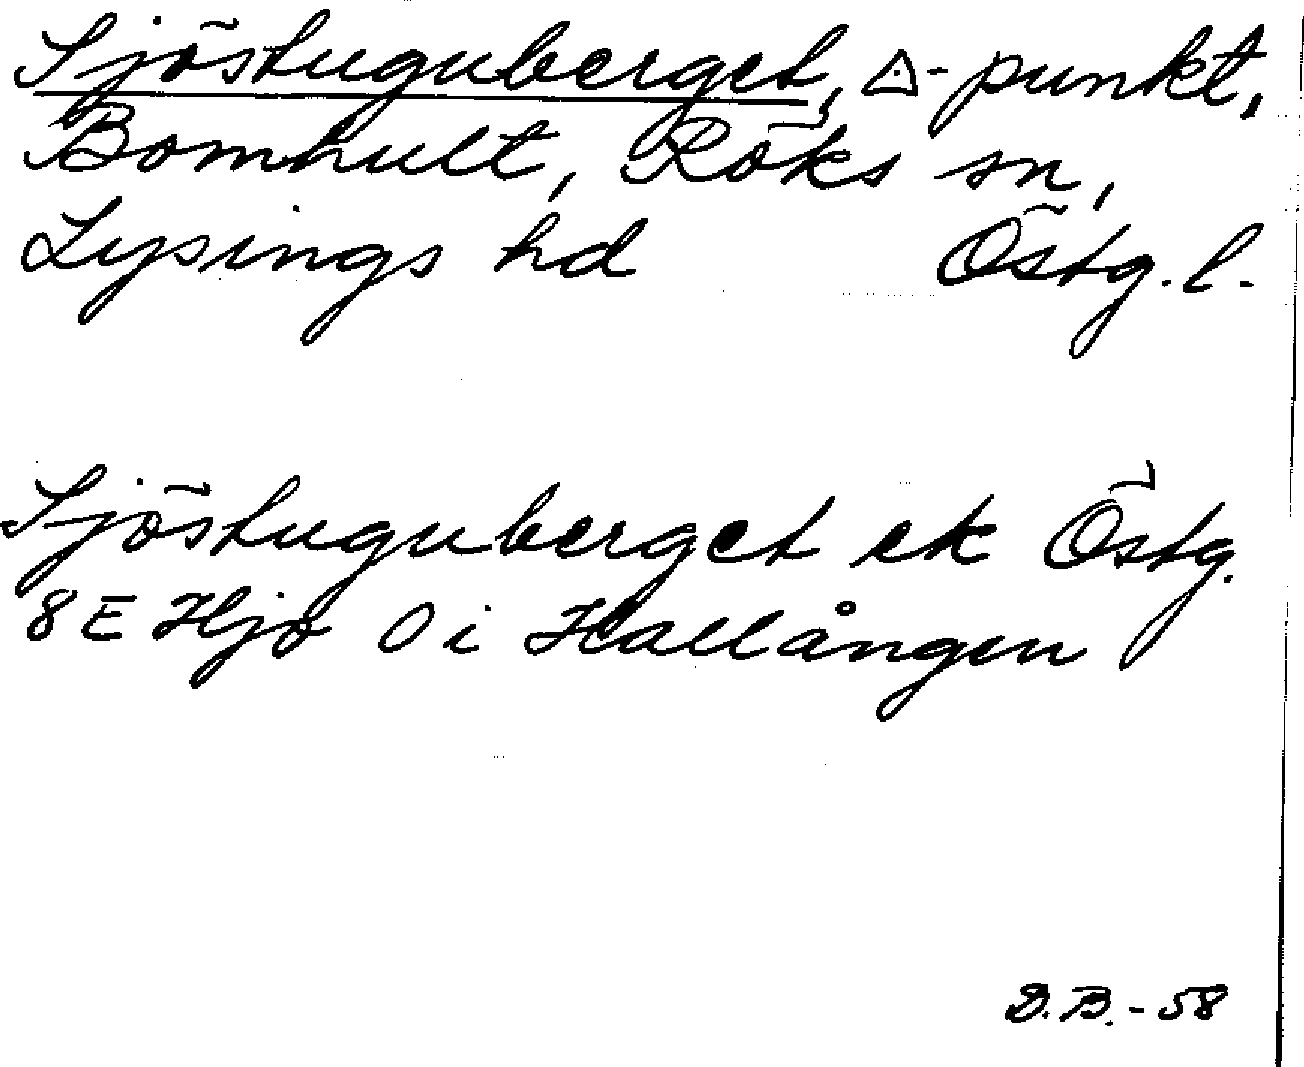 Sjöstuguberget, △-punkt,
Bomhult, Röks sn,
Lysings hd Östg. l.
Sjöstuguberget ek Östg.
8E Hjo O i Hallången
D.B.-58